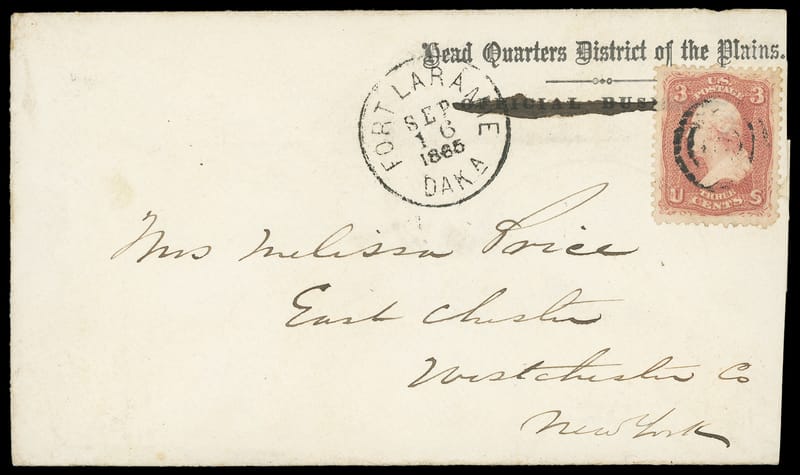 Head Quarters District of the Plains.
OFFICIAL BUSI
FORT LARAMIE
SEP
16
1865
DAKA
3 U.S. 3
POSTAGE
THREE
U CENTS S
Mrs Melissa Price
East Chester
Westchester Co
New York